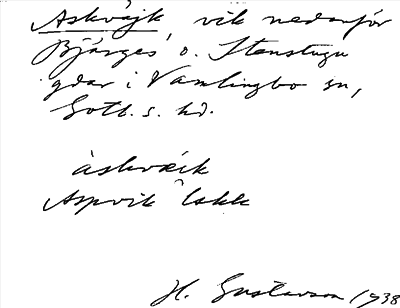 Askvajk vik nedanför
Bjärges o. Stenstugu
gdar i Vamlingbo sn,
Gotl. s. hd.
àskvæik
Aspvik
H. Gustavson 1938